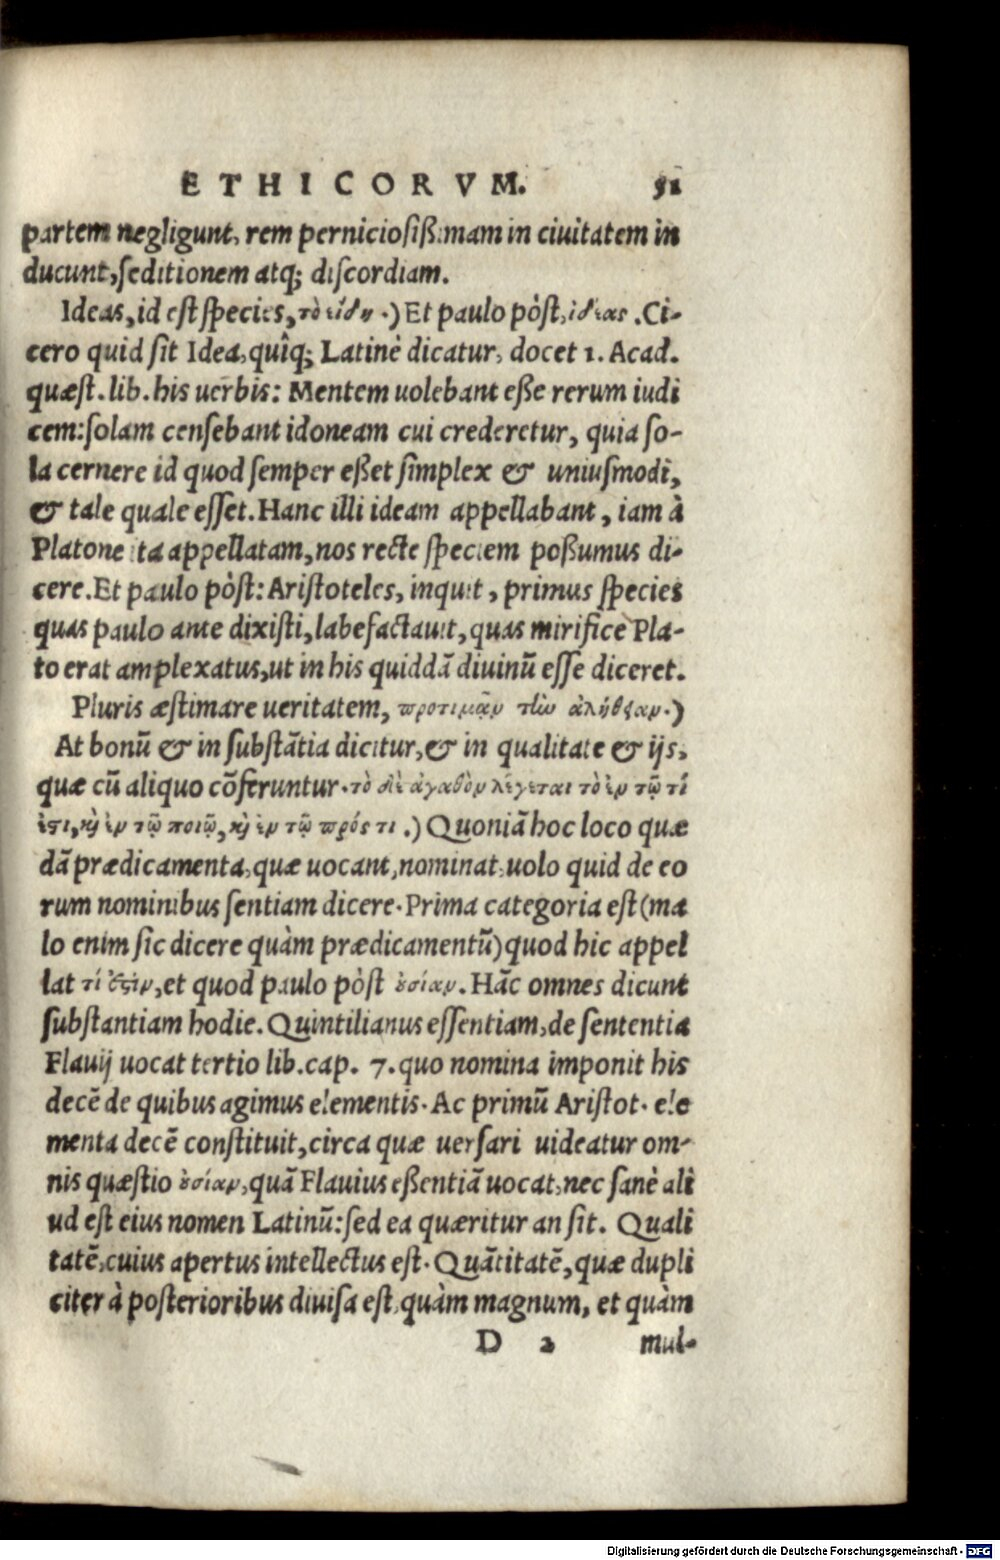 ETHICORVM. 51
partem negligunt, rem perniciosißimam in ciuitatem in
ducunt, seditionem atq; discordiam.
Ideas, id est species, τὸ εἴδη.) Et paulo pòst, ἰδέας. Ci-
cero quid sit Idea, quîq; Latinè dicatur, docet 1. Acad.
quæst. lib. his uerbis: Mentem uolebant eße rerum iudi
cem: solam censebant idoneam cui crederetur, quia so-
la cernere id quod semper eßet simplex & uniusmodi,
& tale quale esset. Hanc illi ideam appellabant, iam à
Platone ita appellatam, nos recte speciem poßumus di-
cere. Et paulo pòst: Aristoteles, inquit, primus species
quas paulo ante dixisti, labefactauit, quas mirifice Pla-
to erat amplexatus, ut in his quiddã diuinũ esse diceret.
Pluris æstimare ueritatem, προτιμᾷν τὴν ἀλήθειαν.)
At bonũ & in substãtia dicitur, & in qualitate & ijs,
quæ cũ aliquo cõferuntur. τὸ δὲ ἀγαθὸν λέγεται τὸ ἐν τῷ τί
ἐστι, κỳ ἐν τῷ ποιῷ, κỳ ἐν τῷ πρός τι.) Quoniã hoc loco quæ
dã prædicamenta, quæ uocant, nominat, uolo quid de eo
rum nominibus sentiam dicere. Prima categoria est (ma
lo enim sic dicere quàm prædicamentũ) quod hic appel
lat τί ἐστίν, et quod paulo pòst ȣσίαν. Hãc omnes dicunt
substantiam hodie. Quintilianus essentiam, de sententia
Flauij uocat tertio lib. cap. 7. quo nomina imponit his
decẽ de quibus agimus elementis. Ac primũ Aristot. ele
menta decẽ constituit, circa quæ uersari uideatur om-
nis quæstio ȣσίαν, quã Flauius eßentiã uocat, nec sanè ali
ud est eius nomen Latinũ: sed ea quæritur an sit. Quali
tatẽ, cuius apertus intellectus est. Quãtitatẽ, quæ dupli
citer à posterioribus diuisa est, quàm magnum, et quàm
D 2 mul-
Digitalisierung gefördert durch die Deutsche Forschungsgemeinschaft - DFG